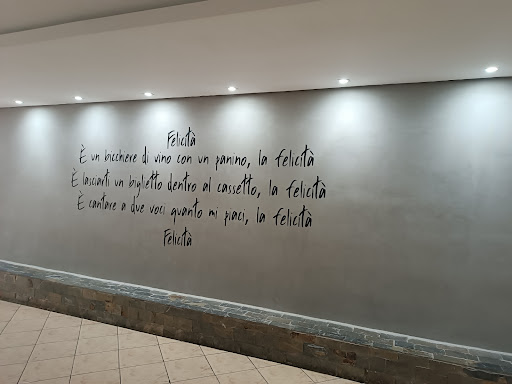 Felicità
È un bicchiere di vino con un panino, la felicità
È lasciarti un biglietto dentro al cassetto, la felicità
È cantare a due voci quanto mi piaci, la felicità
Felicità